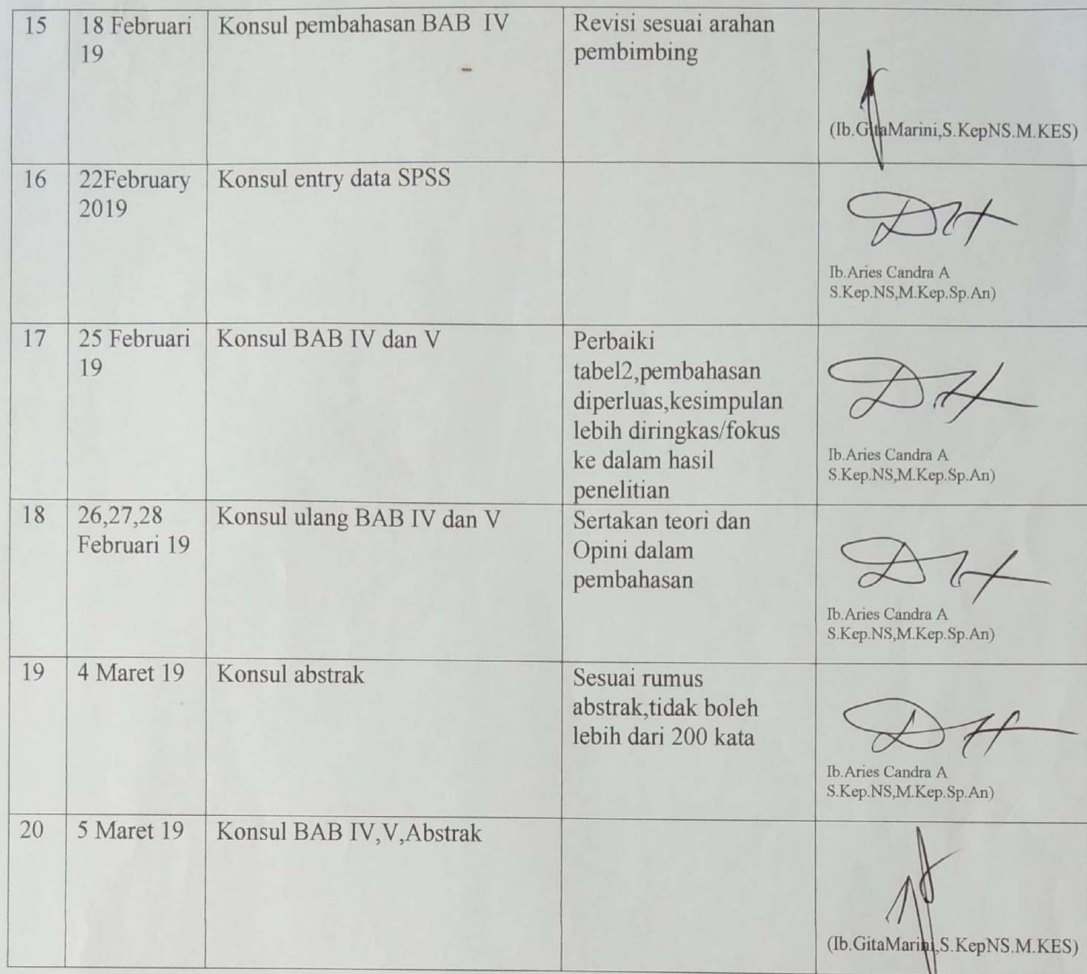 15
18 Februari
19
Konsul pembahasan BAB IV
Revisi sesuai arahan
pembimbing
(Ib.GitaMarini,S.KepNS.M.KES)
16
22February
2019
Konsul entry data SPSS
Ib.Aries Candra A
S.Kep.NS,M.Kep.Sp.An)
17
25 Februari
19
Konsul BAB IV dan V
Perbaiki
tabel2,pembahasan
diperluas,kesimpulan
lebih diringkas/fokus
ke dalam hasil
penelitian
Ib.Aries Candra A
S.Kep.NS,M.Kep.Sp.An)
18
26,27,28
Februari 19
Konsul ulang BAB IV dan V
Sertakan teori dan
Opini dalam
pembahasan
Ib.Aries Candra A
S.Kep.NS,M.Kep.Sp.An)
19
4 Maret 19
Konsul abstrak
Sesuai rumus
abstrak,tidak boleh
lebih dari 200 kata
Ib.Aries Candra A
S.Kep.NS,M.Kep.Sp.An)
20
5 Maret 19
Konsul BAB IV,V,Abstrak
(Ib.GitaMarini,S.KepNS.M.KES)